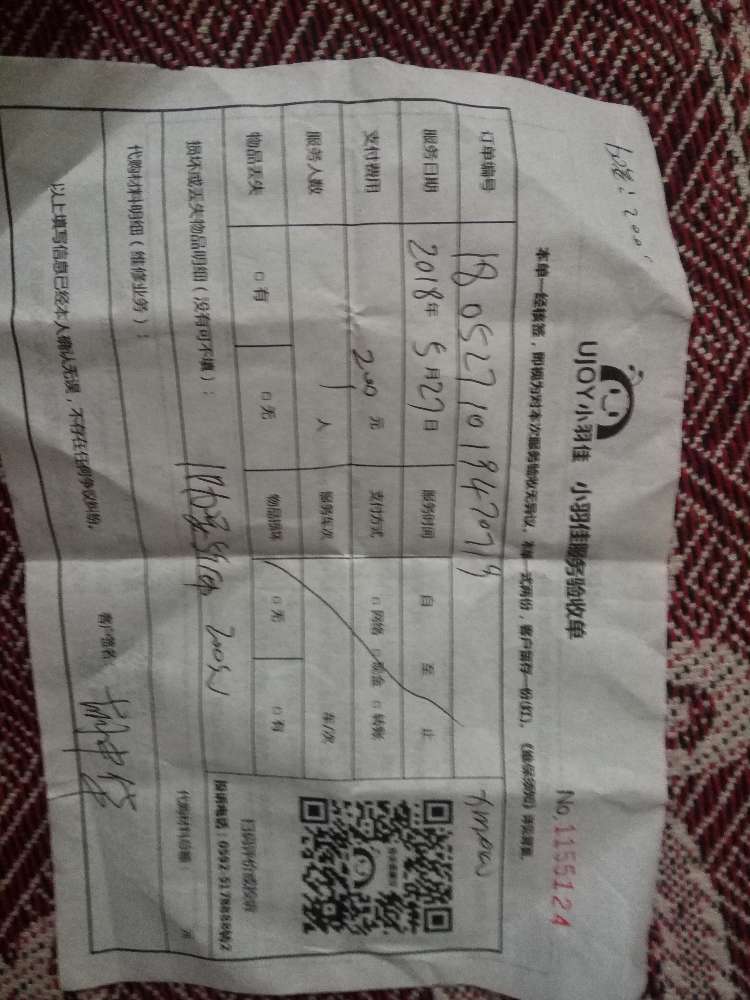 UJOY小羽佳 小羽佳服务验收单
No.1155124
本单一经换签，即视为对本次服务验收无异议。本单一式两份，客户留存一份(红)。
订单编号 180527101947079
服务日期 2018年5月27日 服务时间 自 至 止
支付费用 200元 支付方式 □网络 □现金 □转账
服务人数 1人 服务车次 车/次
物品丢失 □有 □无 物品损坏 □无 □有
扫码评价或投诉
投诉电话：0592-5178888转2
损坏或丢失物品明细（没有可不填）：
200元
代购材料明细（维修业务）： 代购材料价格： 元
以上填写信息已经本人确认无误，不存在任何争议纠纷。 客户签名：